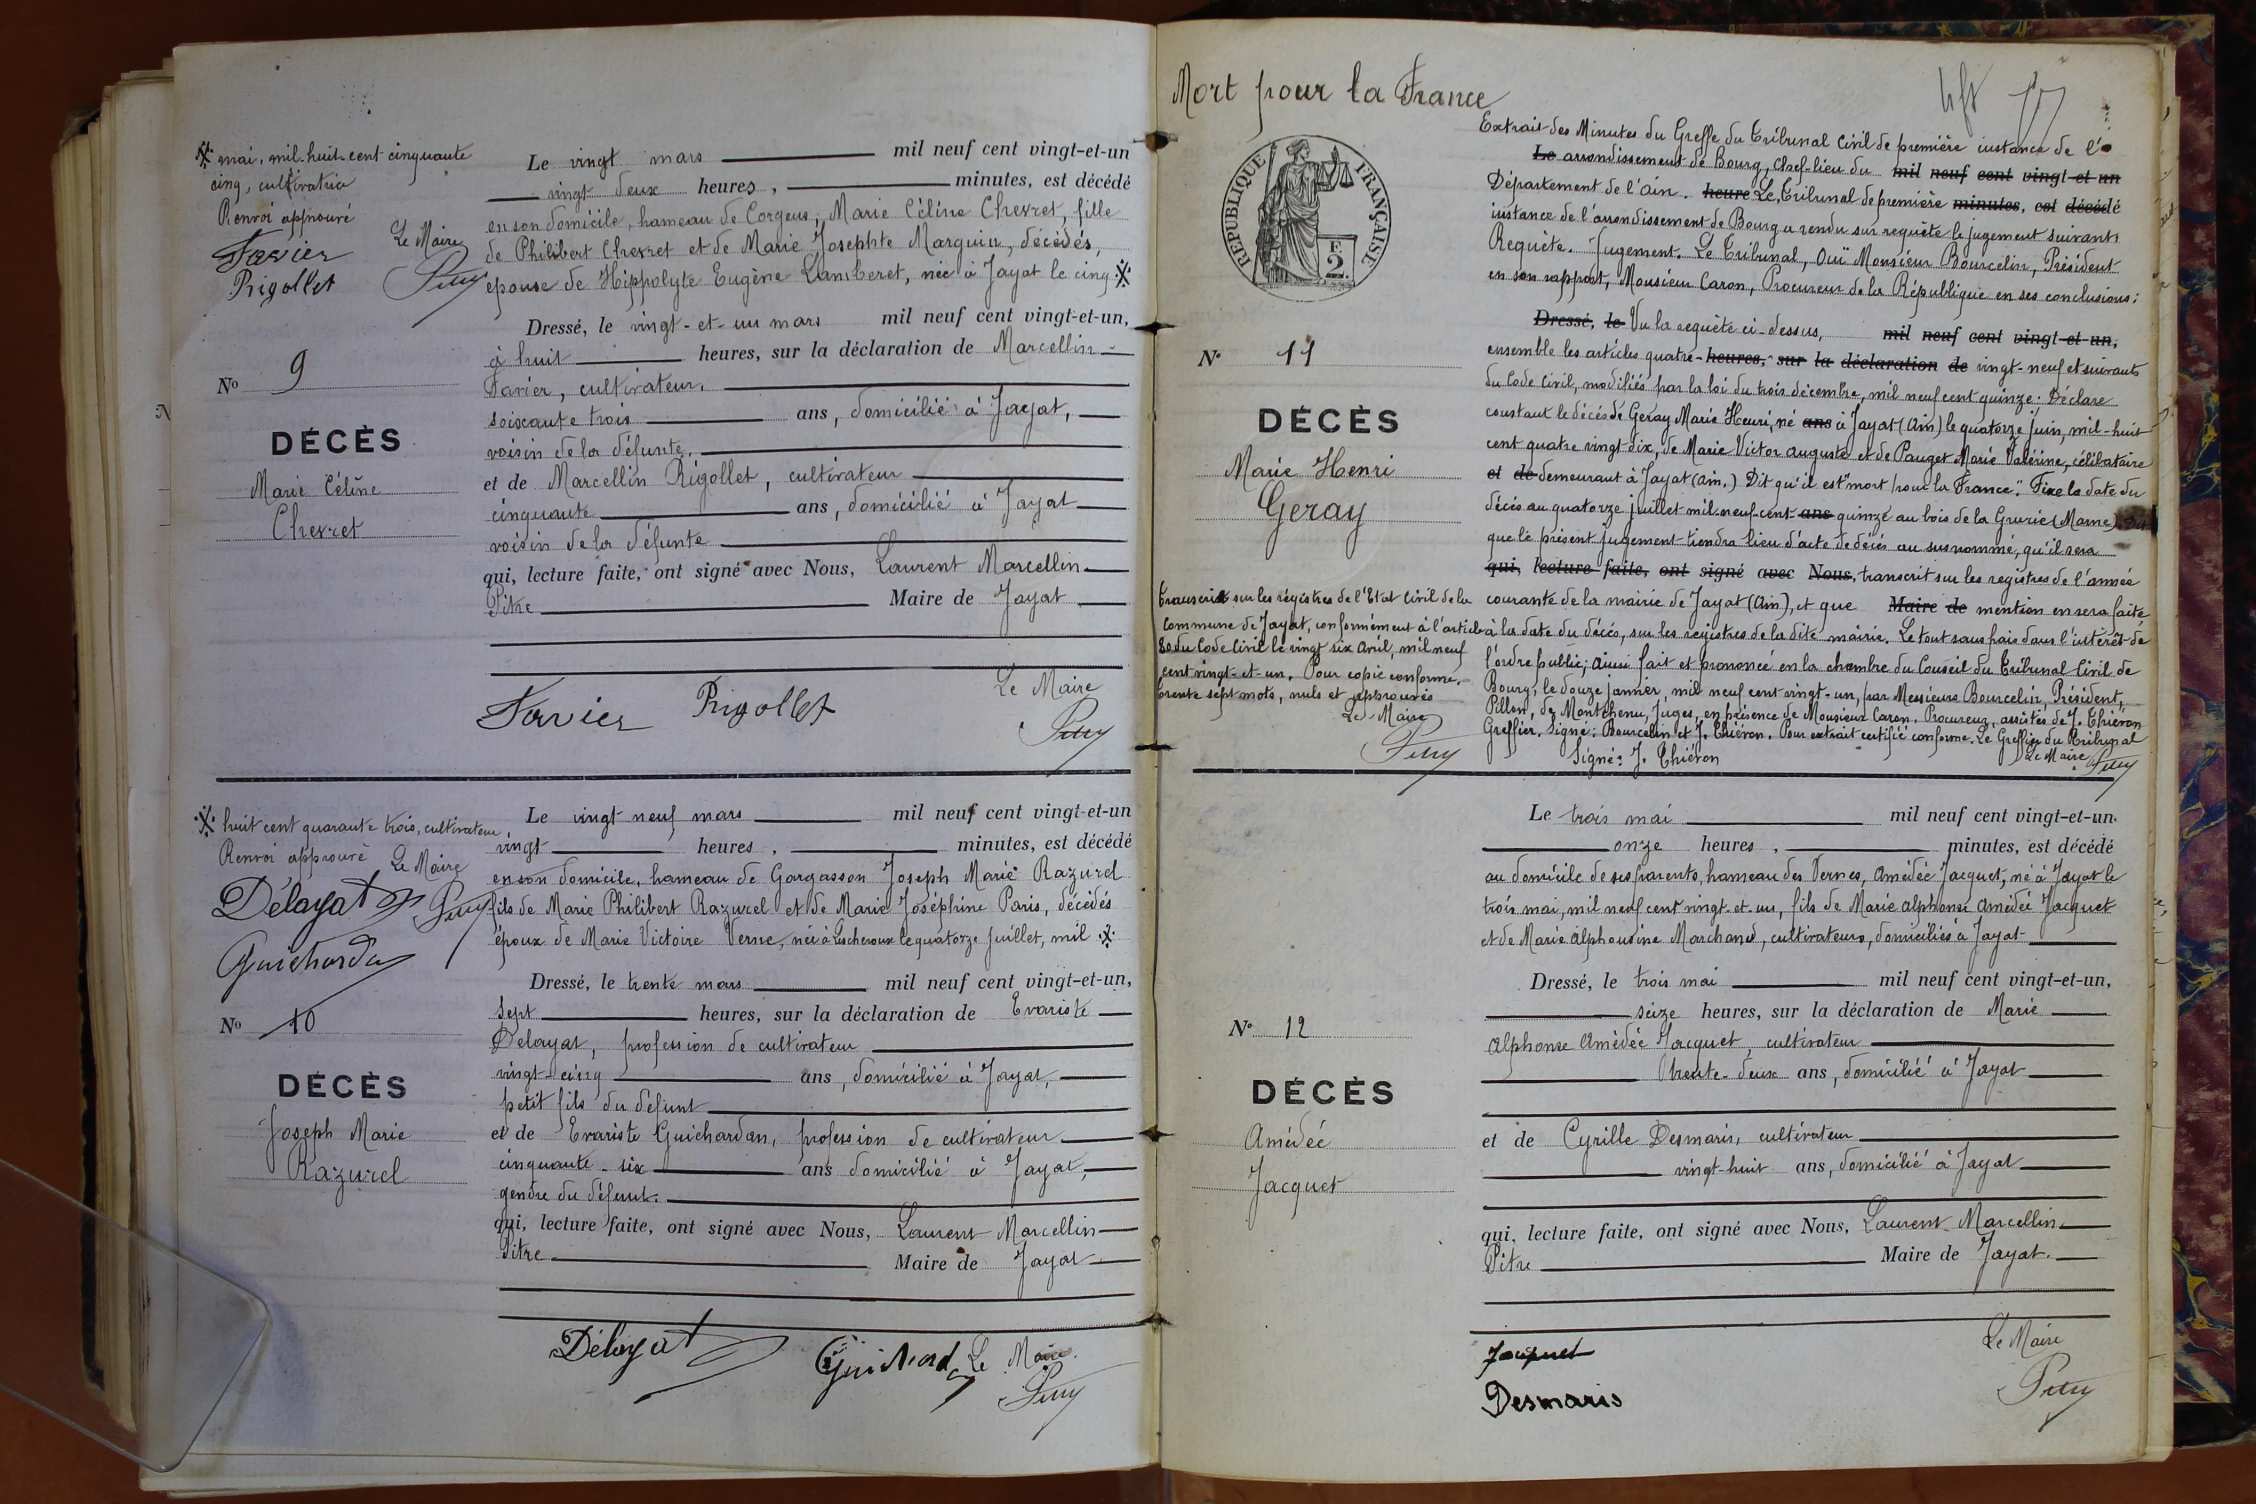 mai, mil-huit-cent cinquante
cinq, cultivatrice
Renvoi approuvé
Le Maire
Favier
Rigollet
Pitre
Le vingt mars mil neuf cent vingt-et-un
vingt deux heures, minutes, est décédé
en son domicile, hameau de Corgeus, Marie Céline Chevret, fille
de Philibert Chevret et de Marie Josephte Marguin, décédés,
épouse de Hippolyte Eugène Lamberet, née à Jayat le cinq
Dressé, le vingt-et-un mars mil neuf cent vingt-et-un,
à huit heures, sur la déclaration de Marcellin
Favier, cultivateur,
soixante trois ans, domicilié à Jayat,
voisin de la défunte,
et de Marcellin Rigollet, cultivateur
cinquante ans, domicilié à Jayat
voisin de la défunte
qui, lecture faite, ont signé avec Nous, Laurent Marcellin
Pitre Maire de Jayat
No 9
DÉCÈS
Marie Céline
Chevret
Le Maire
Favier Rigollet Pitre
huit cent quarante trois, cultivateur,
Renvoi approuvé
Le Maire
Délayat Pitre
Guichardan
Le vingt neuf mars mil neuf cent vingt-et-un
vingt heures, minutes, est décédé
en son domicile, hameau de Gargasson Joseph Marie Razurel
fils de Marie Philibert Razurel et de Marie Joséphine Paris, décédés
époux de Marie Victoire Verne, née à Lescheroux le quatorze juillet, mil
Dressé, le trente mars mil neuf cent vingt-et-un,
sept heures, sur la déclaration de Evariste
Delayat, profession de cultivateur
vingt-cinq ans, domicilié à Jayat,
petit fils du défunt
et de Evariste Guichardan, profession de cultivateur
cinquante-six ans domicilié à Jayat,
gendre du défunt.
qui, lecture faite, ont signé avec Nous, Laurent Marcellin
Pitre Maire de Jayat
No 10
DÉCÈS
Joseph Marie
Razurel
Délayat Guichard Le Maire
Pitre
Mort pour la France
RÉPUBLIQUE FRANÇAISE
F
2
Extrait des Minutes du Greffe du Tribunal Civil de première instance de l'
Le arrondissement de Bourg, chef-lieu du mil neuf cent vingt-et-un
Département de l'ain. heure Le Tribunal de première minutes, est décédé
instance de l'arrondissement de Bourg a rendu sur requête le jugement suivant:
Requête. Jugement. Le Tribunal, Ouï Monsieur Bourcelin, Président
en son rapport, Monsieur Caron, Procureur de la République en ses conclusions;
Dressé, le Vu la requête ci-dessus, mil neuf cent vingt-et-un,
ensemble les articles quatre-heures, sur la déclaration de vingt-neuf et suivants
du Code Civil, modifiés par la loi du trois décembre, mil neuf cent quinze: Déclare
constant le décès de Geray Marie Henri, né ans à Jayat (Ain) le quatorze juin, mil-huit
cent quatre vingt-dix, de Marie Victor auguste et de Pauget Marie Valérine, célibataire
et de demeurant à Jayat (Ain.) Dit qu'il est "mort pour la France". Fixe la date du
décès au quatorze juillet mil-neuf-cent-ans quinze au bois de la Grurie (Marne). Dit
que le présent jugement tiendra lieu d'acte de décès au susnommé, qu'il sera
qui, lecture faite, ont signé avec Nous, transcrit sur les registres de l'année
courante de la mairie de Jayat (Ain), et que Maire de mention en sera faite
à la date du décès, sur les registres de la dite mairie. Le tout sans frais dans l'intérêt de
l'ordre public; ainsi fait et prononcé en la chambre du Conseil du Tribunal Civil de
Bourg, le douze janvier, mil neuf cent vingt-un, par Messieurs Bourcelin, Président,
Pillon, de Montchenu, Juges, en présence de Monsieur Caron, Procureur, assistés de J. Thiéron
Greffier. Signé: Bourcelin et J. Thiéron. Pour extrait certifié conforme. Le Greffier du Tribunal
Signé: J. Thiéron Le Maire Pitre
N° 11
DÉCÈS
Marie Henri
Geray
Transcrit sur les registres de l'Etat Civil de la
commune de Jayat, conformément à l'article
80 du Code Civil le vingt six avril, mil neuf
cent vingt-et-un. Pour copie conforme.
trente sept mots, nuls et approuvés
Le Maire
Pitre
Le trois mai mil neuf cent vingt-et-un.
onze heures, minutes, est décédé
au domicile de ses parents, hameau des Vernes, Amédée Jacquet, né à Jayat le
trois mai, mil neuf cent vingt-et-un, fils de Marie alphonse Amédée Jacquet
et de Marie Alphonsine Marchand, cultivateurs, domiciliés à Jayat
Dressé, le trois mai mil neuf cent vingt-et-un,
seize heures, sur la déclaration de Marie
Alphonse Amédée Jacquet, cultivateur
trente-deux ans, domicilié à Jayat
et de Cyrille Desmaris, cultivateur
vingt-huit ans, domicilié à Jayat
qui, lecture faite, ont signé avec Nous, Laurent Marcellin
Pitre Maire de Jayat.
N° 12
DÉCÈS
Amédée
Jacquet
Jacquet
Desmaris
Le Maire
Pitre